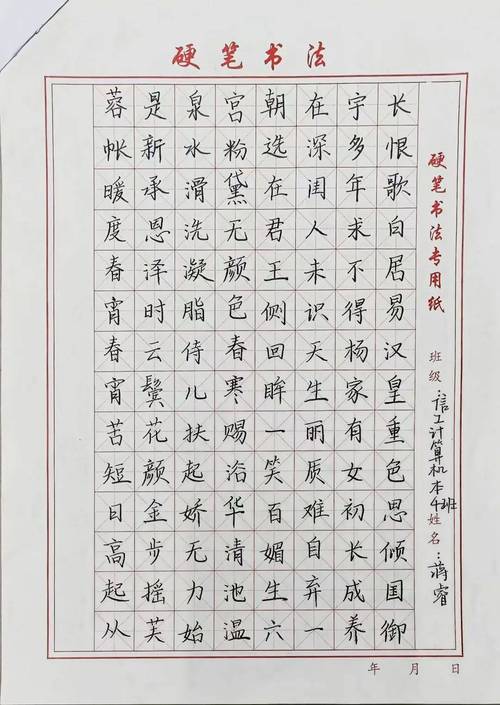 硬笔书法
硬笔书法专用纸
班级：信工计算机本4班 姓名：蒋睿
长恨歌白居易汉皇重色思倾国御
宇多年求不得杨家有女初长成养
在深闺人未识天生丽质难自弃一
朝选在君王侧回眸一笑百媚生六
宫粉黛无颜色春寒赐浴华清池温
泉水滑洗凝脂侍儿扶起娇无力始
是新承恩泽时云鬓花颜金步摇芙
蓉帐暖度春宵春宵苦短日高起从
年 月 日